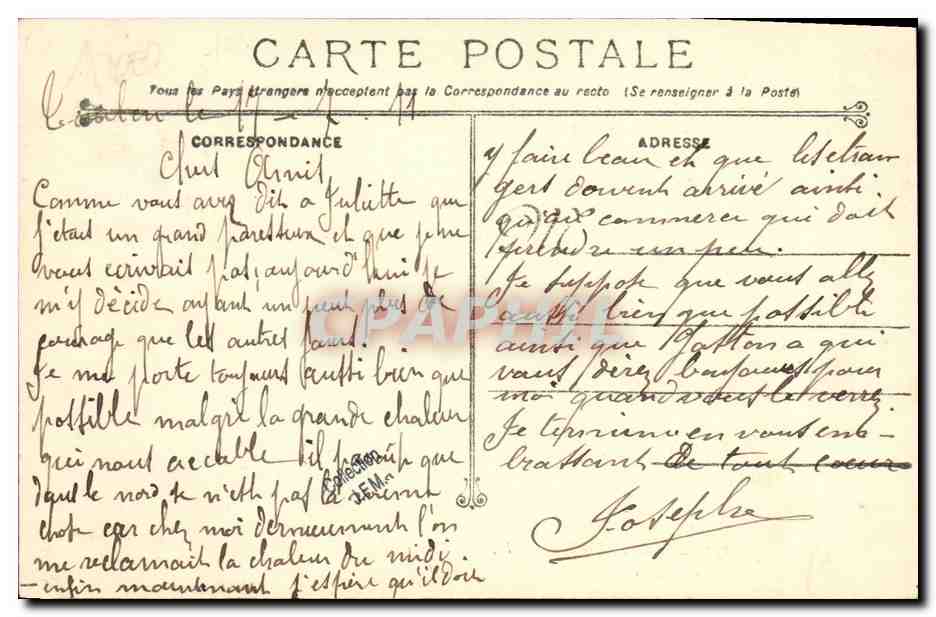 CARTE POSTALE
Tous les Pays étrangers n'acceptent pas la Correspondance au recto (Se renseigner à la Poste)
Toulon le 17 - 7 - 11
CORRESPONDANCE
Chers Amis
Comme vous avez dit a Juliette que
j'étais un grand paresseux et que je ne
vous ecrivait pas, aujourd'hui je
m'y décide ayant un peut plus de
courage que les autres jours.
Je me porte toujours aussi bien que
possible malgré la grande chaleur
qui nous accable il parait que
dans le nord se n'est pas la même
chose car chez moi dernierement l'on
me reclamait la chaleur du midi.
enfin maintenant j'espère qu'il doit
ADRESSE
y faire beau et que les etran
gers doivent arrivé ainsi
que le commerce qui doit
prendre un peu.
Je suppose que vous allez
aussi bien que possible
ainsi que Gaston a qui
vous direz bonjour pour
moi quand vous le verrez
Je termine en vous em-
brassant de tout coeur
Josephe
CPAPHIL
Collection
J.F.M.